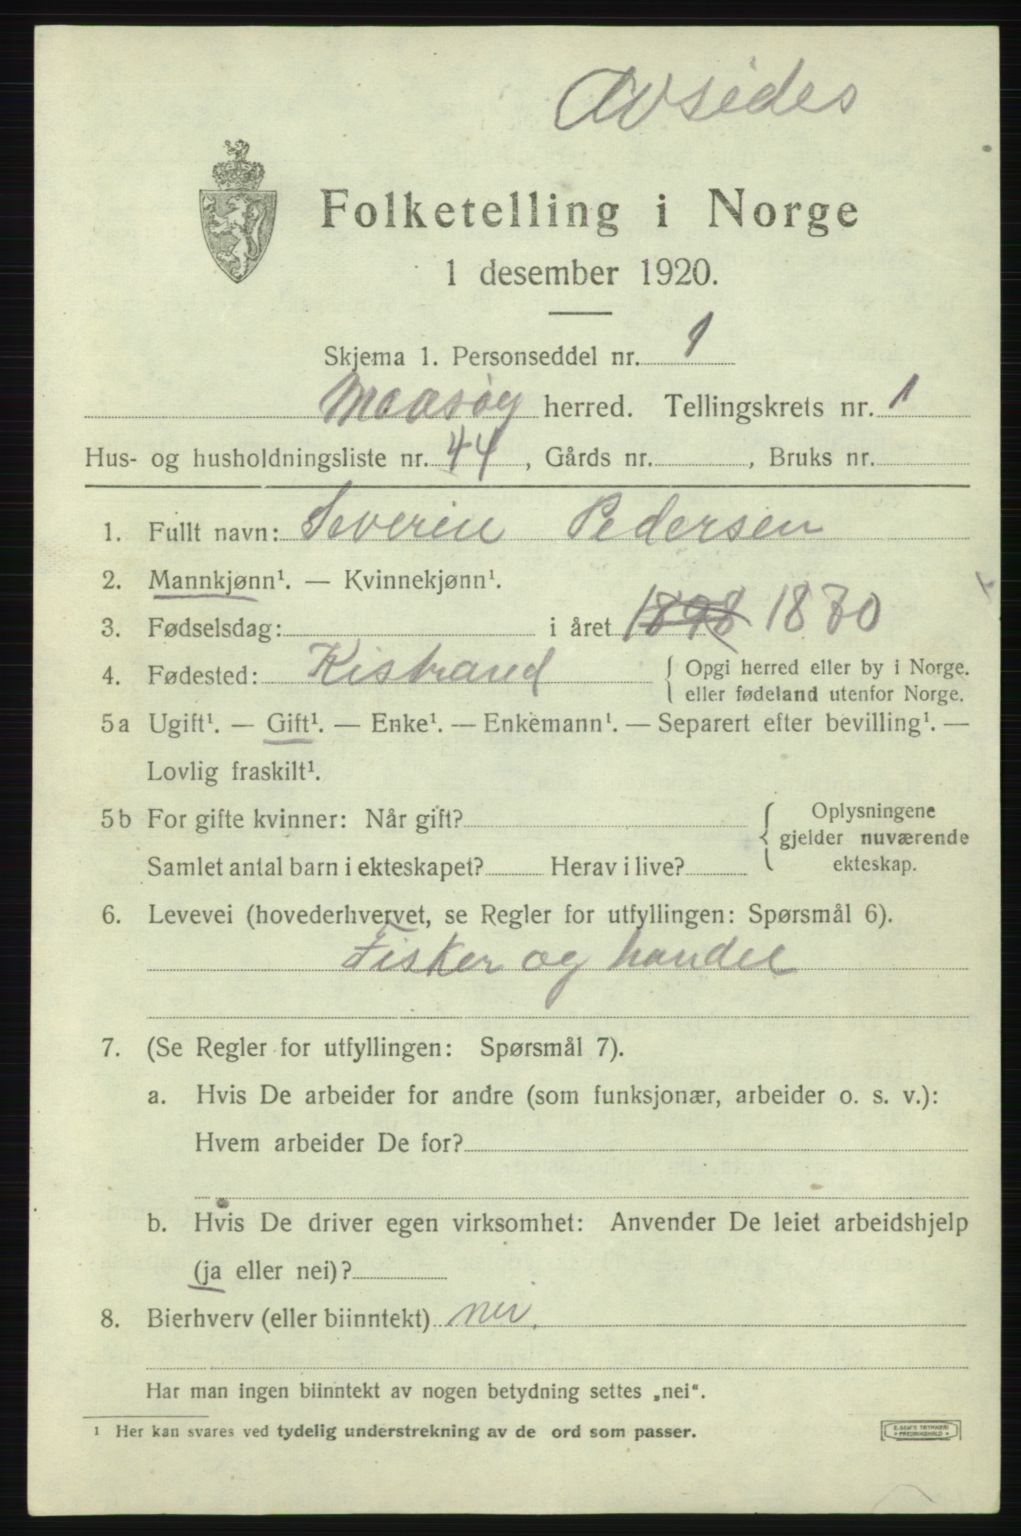 Avsides
Folketelling i Norge
1 desember 1920.
Skjema 1. Personseddel nr. 1
Maasøy herred. Tellingskrets nr. 1
Hus- og husholdningsliste nr. 44, Gårds nr. , Bruks nr.
1. Fullt navn: Severin Pedersen
2. Mannkjønn¹. — Kvinnekjønn¹.
3. Fødselsdag: i året 1898 1870
4. Fødested: Kistrand { Opgi herred eller by i Norge.
eller fødeland utenfor Norge.
5a Ugift¹. — Gift¹. — Enke¹. — Enkemann¹. — Separert efter bevilling¹. —
Lovlig fraskilt¹.
5b For gifte kvinner: Når gift? { Oplysningene
gjelder nuværende
Samlet antal barn i ekteskapet? Herav i live? ekteskap.
6. Levevei (hovederhvervet, se Regler for utfyllingen: Spørsmål 6).
Fisker og handel
7. (Se Regler for utfyllingen: Spørsmål 7).
a. Hvis De arbeider for andre (som funksjonær, arbeider o. s. v.):
Hvem arbeider De for?
b. Hvis De driver egen virksomhet: Anvender De leiet arbeidshjelp
(ja eller nei)?
8. Bierhverv (eller biinntekt) nei.
Har man ingen biinntekt av nogen betydning settes „nei".
¹ Her kan svares ved tydelig understrekning av de ord som passer.
E. SEM'S TRYKKERI
FREDRIKSHALD